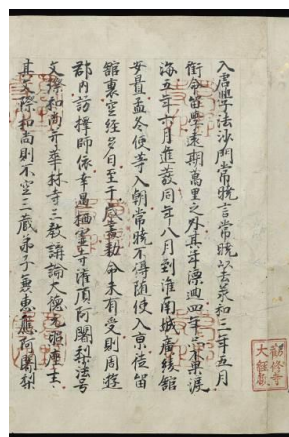 入唐學法沙門常曉言常曉以去承和三年五月
銜命留學遠期萬里之外其年漂迴四年亦不果渡
海五年六月進發同年八月到淮南城廣陵館
安置孟冬使等入朝常曉不得隨使入京徒留
館裏空經多日至于歲盡勅命未有受則周遊
郡内訪擇師依幸遇栖靈寺灌頂阿闍梨法号
文㻮和尚并華林寺三教講論大德元照座主
其文㻮和尚則不空三藏弟子兼惠應阿闍梨
勸修寺
大經藏